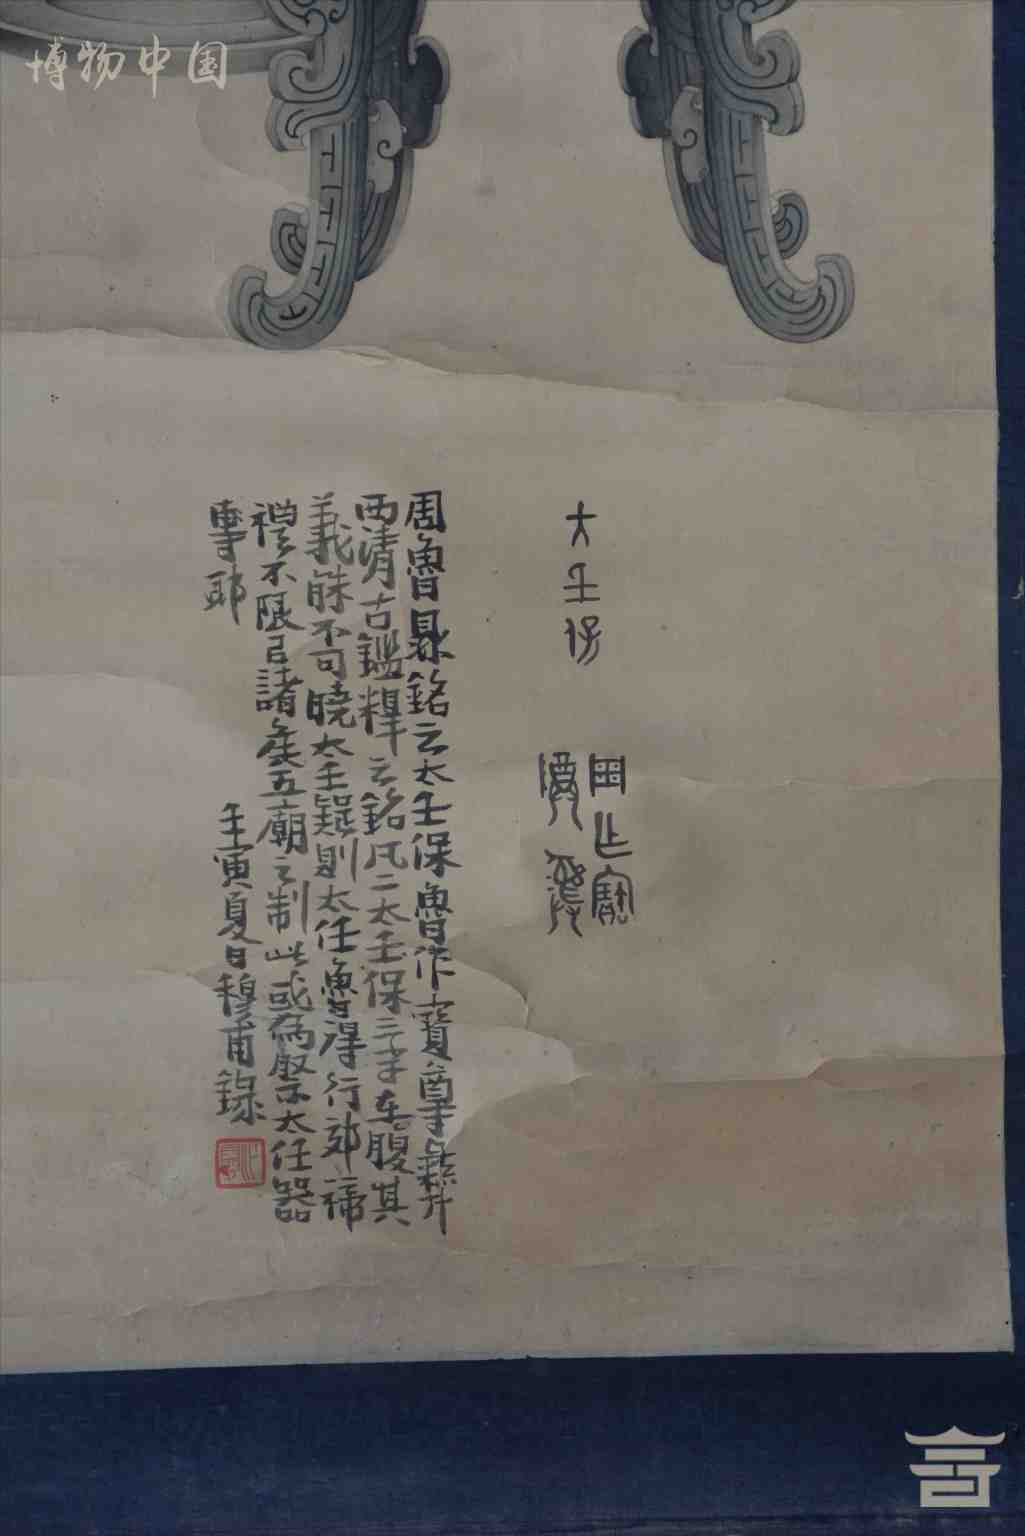 博物中国
大壬保
周魯鼎銘云太壬保魯作寶尊彝
西清古鑑釋云銘凡二太壬保三字在腹其
義殊不可曉太壬疑則太任魯得行郊禘
禮不限吕諸矦五廟之制此或為祭太任器
專耶
壬寅夏日穆甫錄